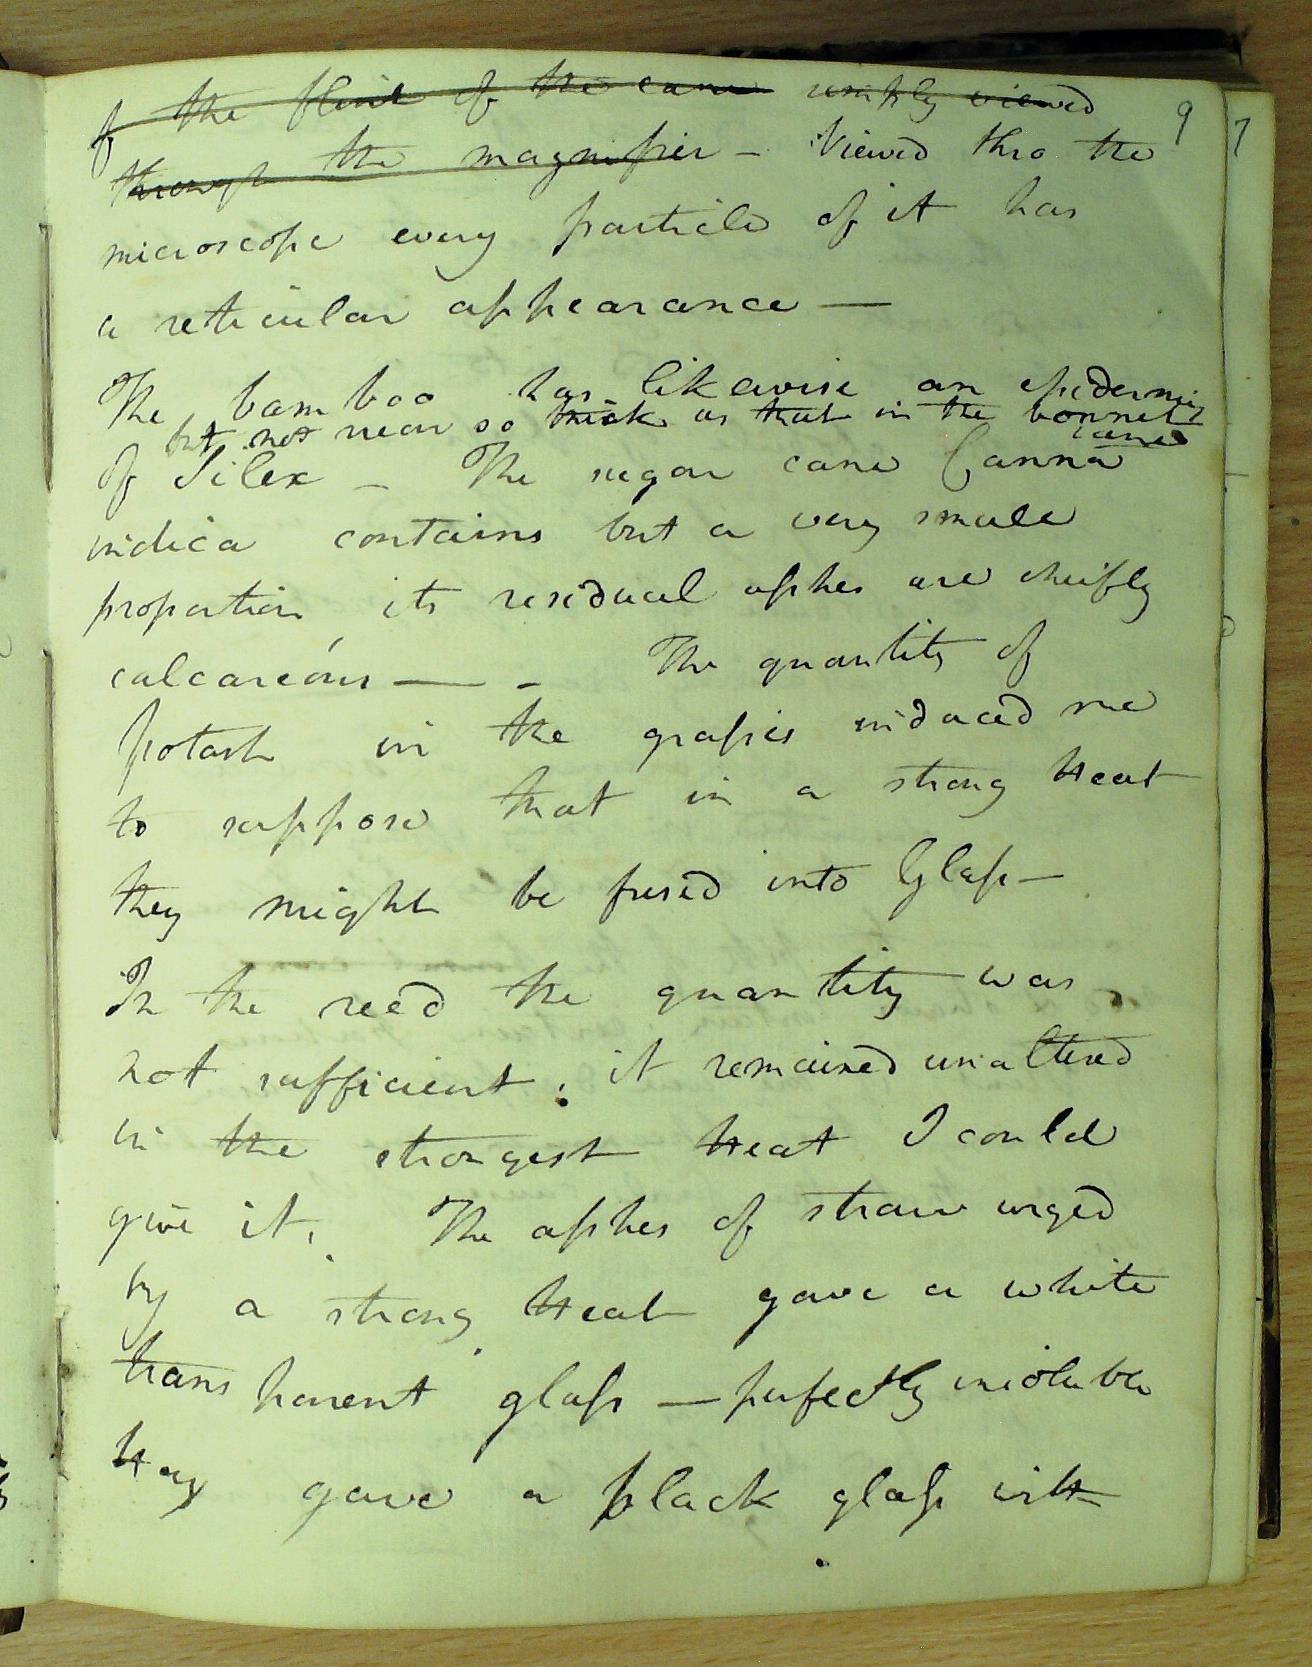 of the flint of the cane viewed 9 7
through the magnifier - Viewed thro the
microscope every particle of it has
a reticular appearance —
The bamboo has likewise an epidermis
but not near so thick as that in the bonnet
cane
of Silex - The sugar cane Canna
indica contains but a very small
proportion its residual aſhes are cheifly
calcareous — - The quantity of
potash in the graſses induced me
to suppose that in a strong Heat
they might be fused into Glaſs —
In the reed the quantity was
not sufficient; it remained unaltered
in the strongest Heat I could
give it. The aſhes of straw urged
by a strong Heat gave a white
transparent glaſs — perfectly insoluble
Hay gave a black glaſs with